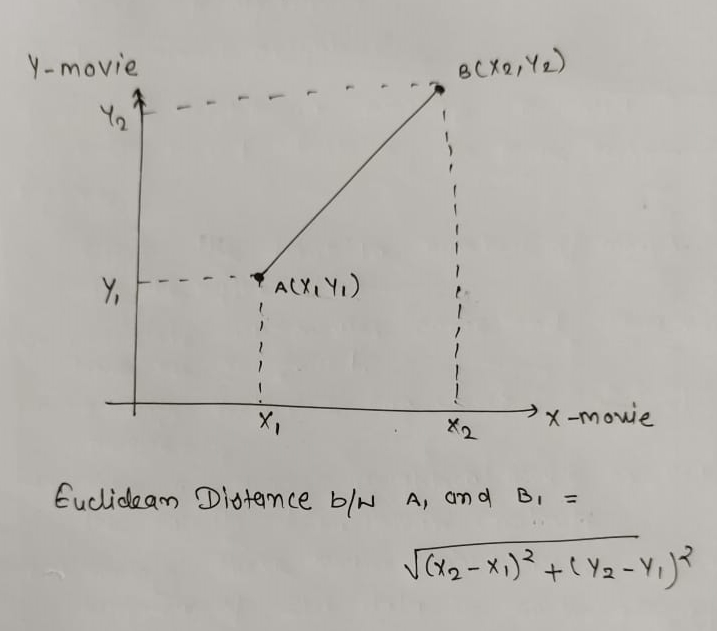 Y-movie
B(X2, Y2)
Y2
Y1
A(X1 Y1)
X1
X2
X-movie
Euclidean Distance b/w A, and B1 =
√(X2 - X1)² + (Y2 - Y1)²